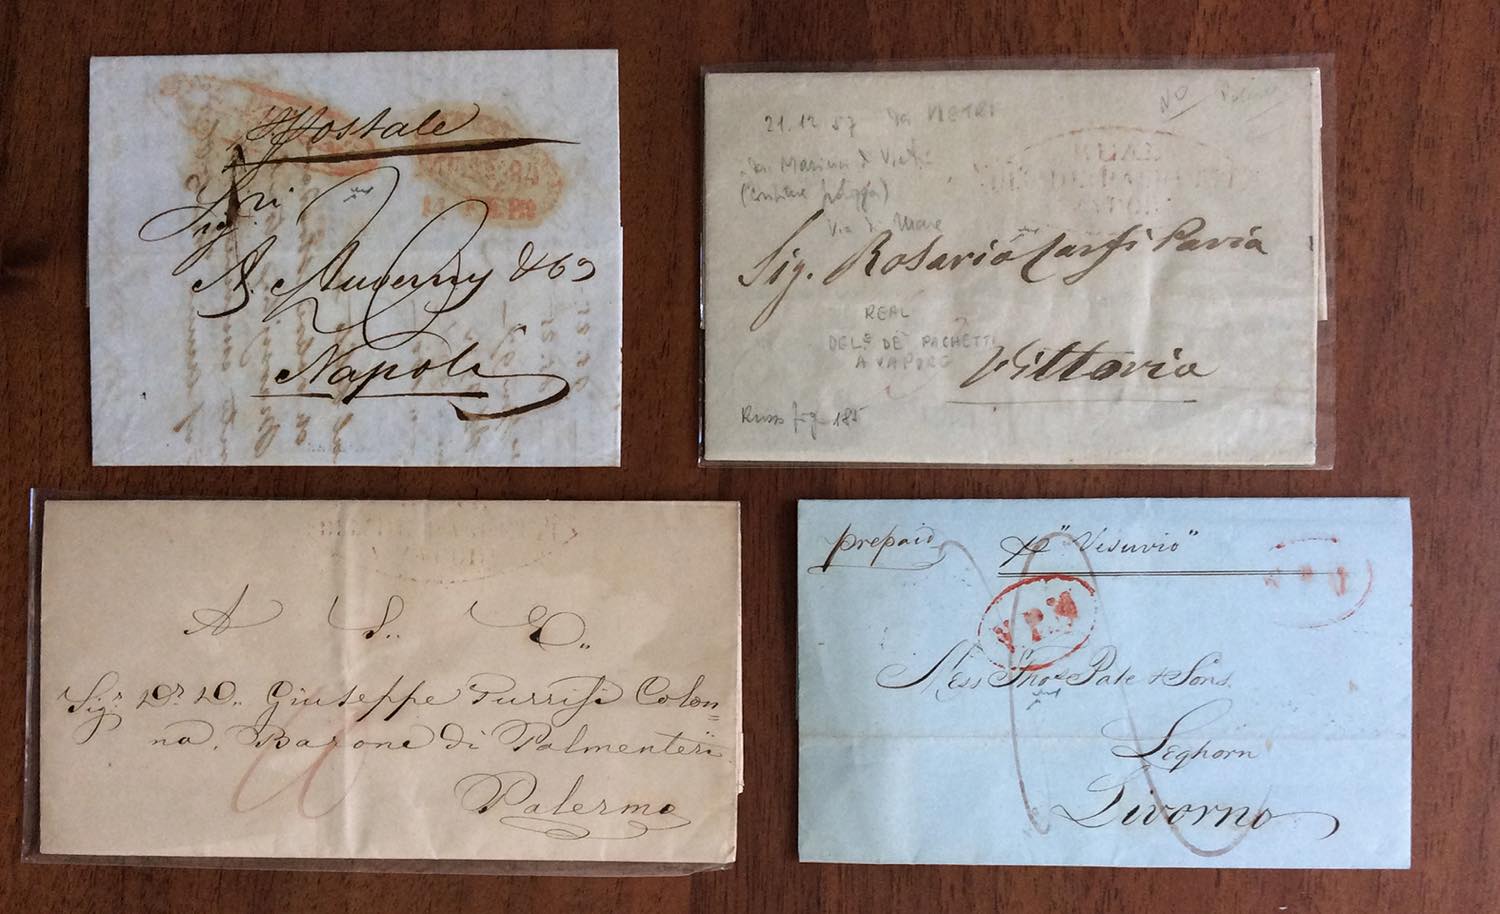 Postale
Sig.ri
A. Auverny & Co
Napoli
21.12 57 da VIETRI
da Marina di Vietri
Via di Mare
NO
Sig. Rosario Carfi Pavia
REAL
DELE DE PACHETTI
A VAPORE
Vittoria
Russo fig 185
A S. E.
Sig.r Dr. D. Giuseppe Turrisi Colon=
na, Barone di Palmenteri
Palermo
prepaid
pr "Vesuvio"
V.P.M
Mess Thos Pate & Sons
Leghorn
Livorno